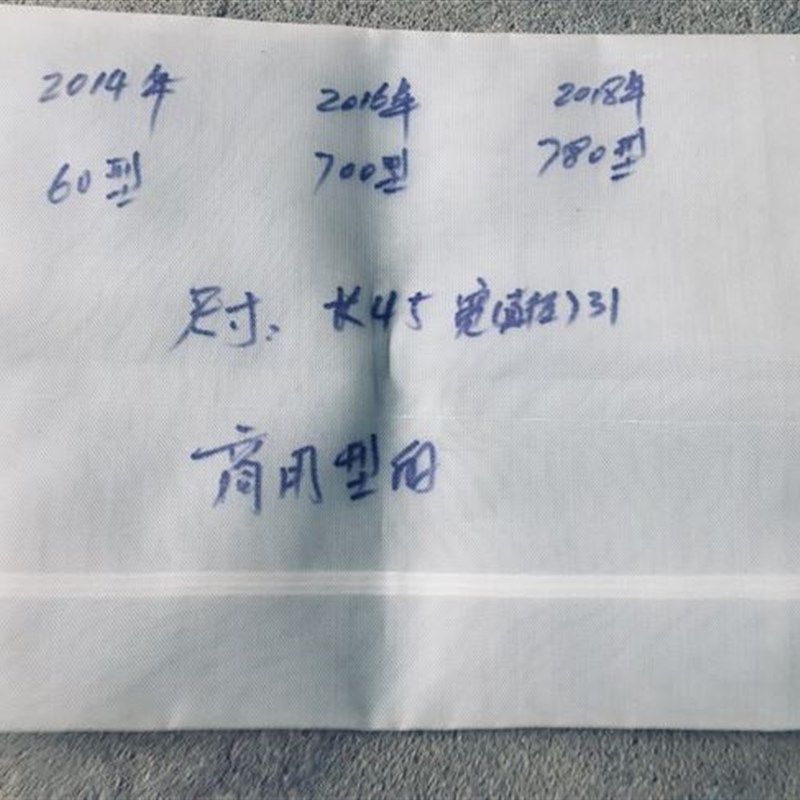 2014年 2016年 2018年
60型 700型 780型
尺寸: 长45 宽(直径)31
商用型的